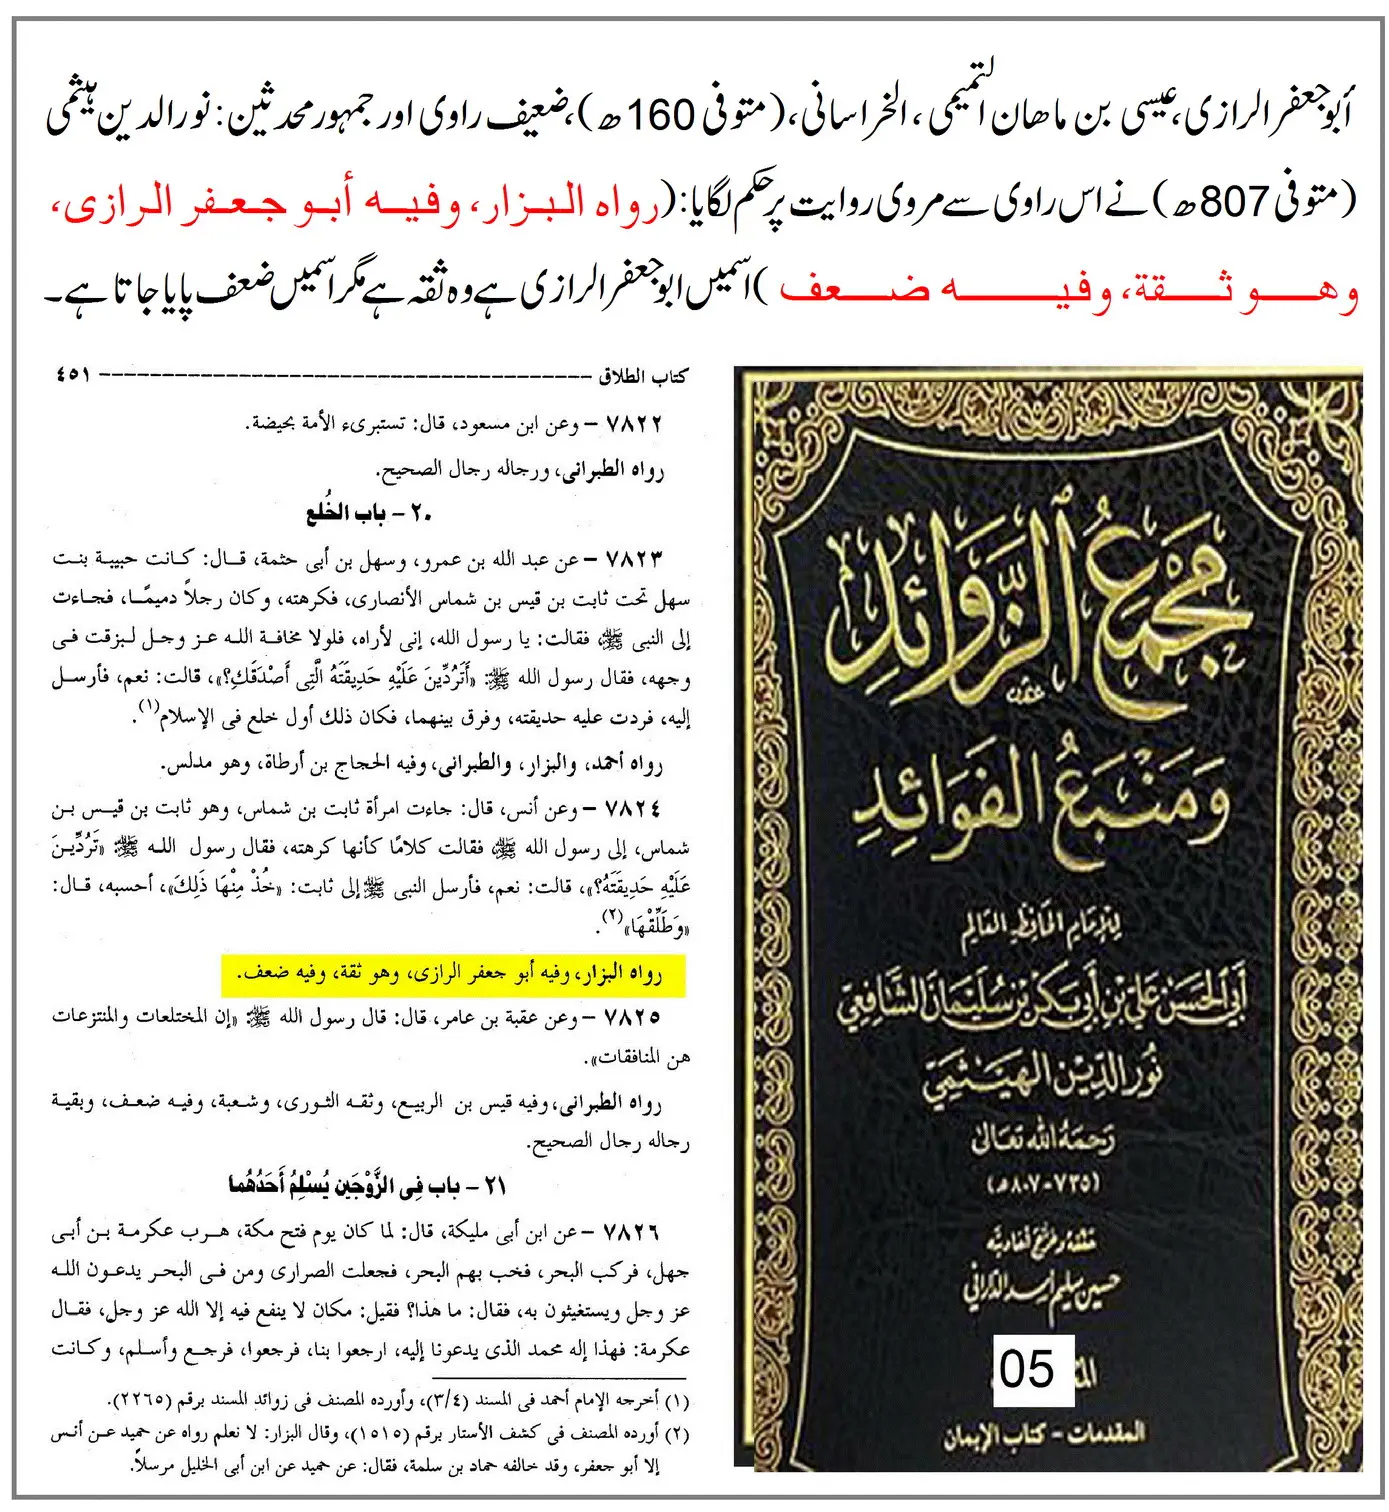 أبو جعفر الرازی، عیسی بن ماهان التمیمی، الخراسانی، (متوفی 160ھ)، ضعیف راوی اور جمہور محدثین: نور الدین ہیثمی
(متوفی 807ھ) نے اس راوی سے مروی روایت پر حکم لگایا: (رواه البزار، وفيه أبو جعفر الرازى،
وهو ثقة، وفيه ضعف) اسمیں ابو جعفر الرازی ہے وہ ثقہ ہے مگر اسمیں ضعف پایا جاتا ہے۔
كتاب الطلاق ---------------------------------------- ٤٥١
٧٨٢٢ – وعن ابن مسعود، قال: تستبرىء الأمة بحيضة.
رواه الطبرانى، ورجاله رجال الصحيح.
٢٠ – باب الخُلع
٧٨٢٣ – عن عبد الله بن عمرو، وسهل بن أبى حثمة، قال: كانت حبيبة بنت
سهل تحت ثابت بن قيس بن شماس الأنصارى، فكرهته، وكان رجلاً دميمًا، فجاءت
إلى النبى ﷺ فقالت: يا رسول الله، إنى لأراه، فلولا مخافة الله عز وجل لبزقت فى
وجهه، فقال رسول الله ﷺ: «أَتَرُدِّينَ عَلَيْهِ حَدِيقَتَهُ الَّتِى أَصْدَقَكِ؟»، قالت: نعم، فأرسل
إليه، فردت عليه حديقته، وفرق بينهما، فكان ذلك أول خلع فى الإسلام(١).
رواه أحمد، والبزار، والطبرانى، وفيه الحجاج بن أرطاة، وهو مدلس.
٧٨٢٤ – وعن أنس، قال: جاءت امرأة ثابت بن شماس، وهو ثابت بن قيس بن
شماس، إلى رسول الله ﷺ فقالت كلامًا كأنها كرهته، فقال رسول الله ﷺ «تَرُدِّينَ
عَلَيْهِ حَدِيقَتَهُ؟»، قالت: نعم، فأرسل النبى ﷺ إلى ثابت: «خُذْ مِنْهَا ذَلِكَ»، أحسبه، قال:
«وَطَلِّقْهَا»(٢).
رواه البزار، وفيه أبو جعفر الرازى، وهو ثقة، وفيه ضعف.
٧٨٢٥ – وعن عقبة بن عامر، قال: قال رسول الله ﷺ «إن المختلعات والمنتزعات
هن المنافقات».
رواه الطبرانى، وفيه قيس بن الربيع، وثقه الثورى، وشعبة، وفيه ضعف، وبقية
رجاله رجال الصحيح.
٢١ – باب فِى الزَّوْجَين يُسْلِمُ أَحَدُهُما
٧٨٢٦ – عن ابن أبى مليكة، قال: لما كان يوم فتح مكة، هرب عكرمة بن أبى
جهل، فركب البحر، فخب بهم البحر، فجعلت الصرارى ومن فى البحر يدعون الله
عز وجل ويستغيثون به، فقال: ما هذا؟ فقيل: مكان لا ينفع فيه إلا الله عز وجل، فقال
عكرمة: فهذا إله محمد الذى يدعونا إليه، ارجعوا بنا، فرجعوا، فرجع وأسلم، وكانت
(١) أخرجه الإمام أحمد فى المسند (٣/٤)، وأورده المصنف فى زوائد المسند برقم (٢٢٦٥).
(٢) أورده المصنف فى كشف الأستار برقم (١٥١٥)، وقال البزار: لا نعلم رواه عن حميد عن أنس
إلا أبو جعفر، وقد خالفه حماد بن سلمة، فقال: عن حميد عن ابن أبى الخليل مرسلاً.
مجمع الزوائد
ومنبع الفوائد
للإمام الحافظ العالم
أبي الحسن علي بن أبي بكر بن سليمان الشافعي
نور الدين الهيثمي
رحمه الله تعالى
(٧٣٥-٨٠٧ه)
حققه وخرج أحاديثه
حسين سليم أسد الداراني
05
المقدمات - كتاب الإيمان